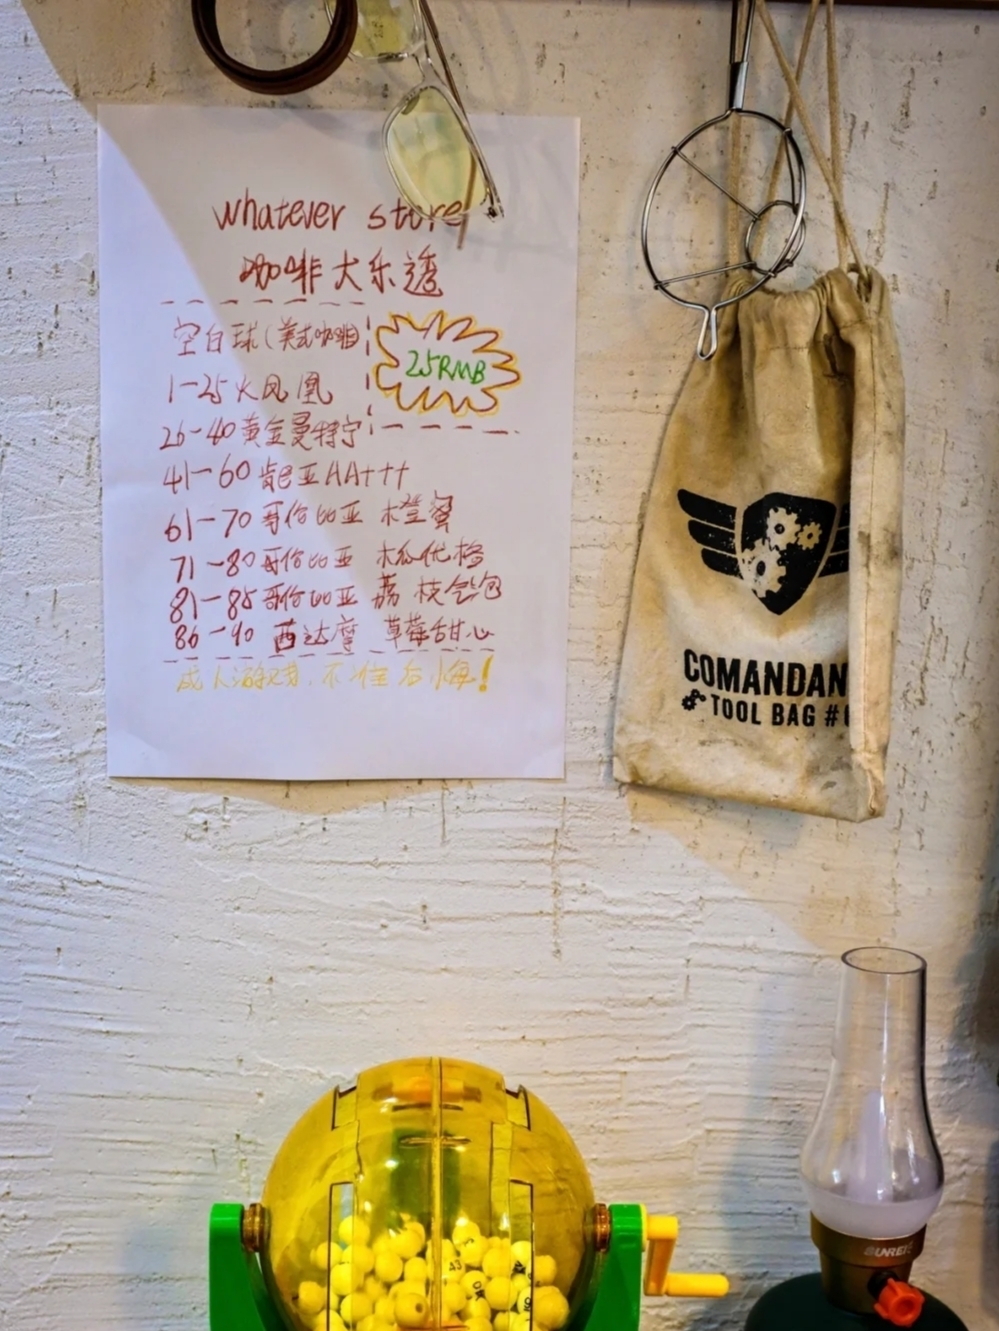 whatever store
咖啡大乐透
空白球(美式咖啡)
25RMB
1-25 火凤凰
26-40 黄金曼特宁
41-60 肯尼亚AA+++
61-70 哥伦比亚 橙蜜
71-80 哥伦比亚 木瓜优格
81-85 哥伦比亚 荔枝气泡
86-90 西达摩 草莓甜心
成人游戏, 不准后悔!
COMANDAN
TOOL BAG #
43